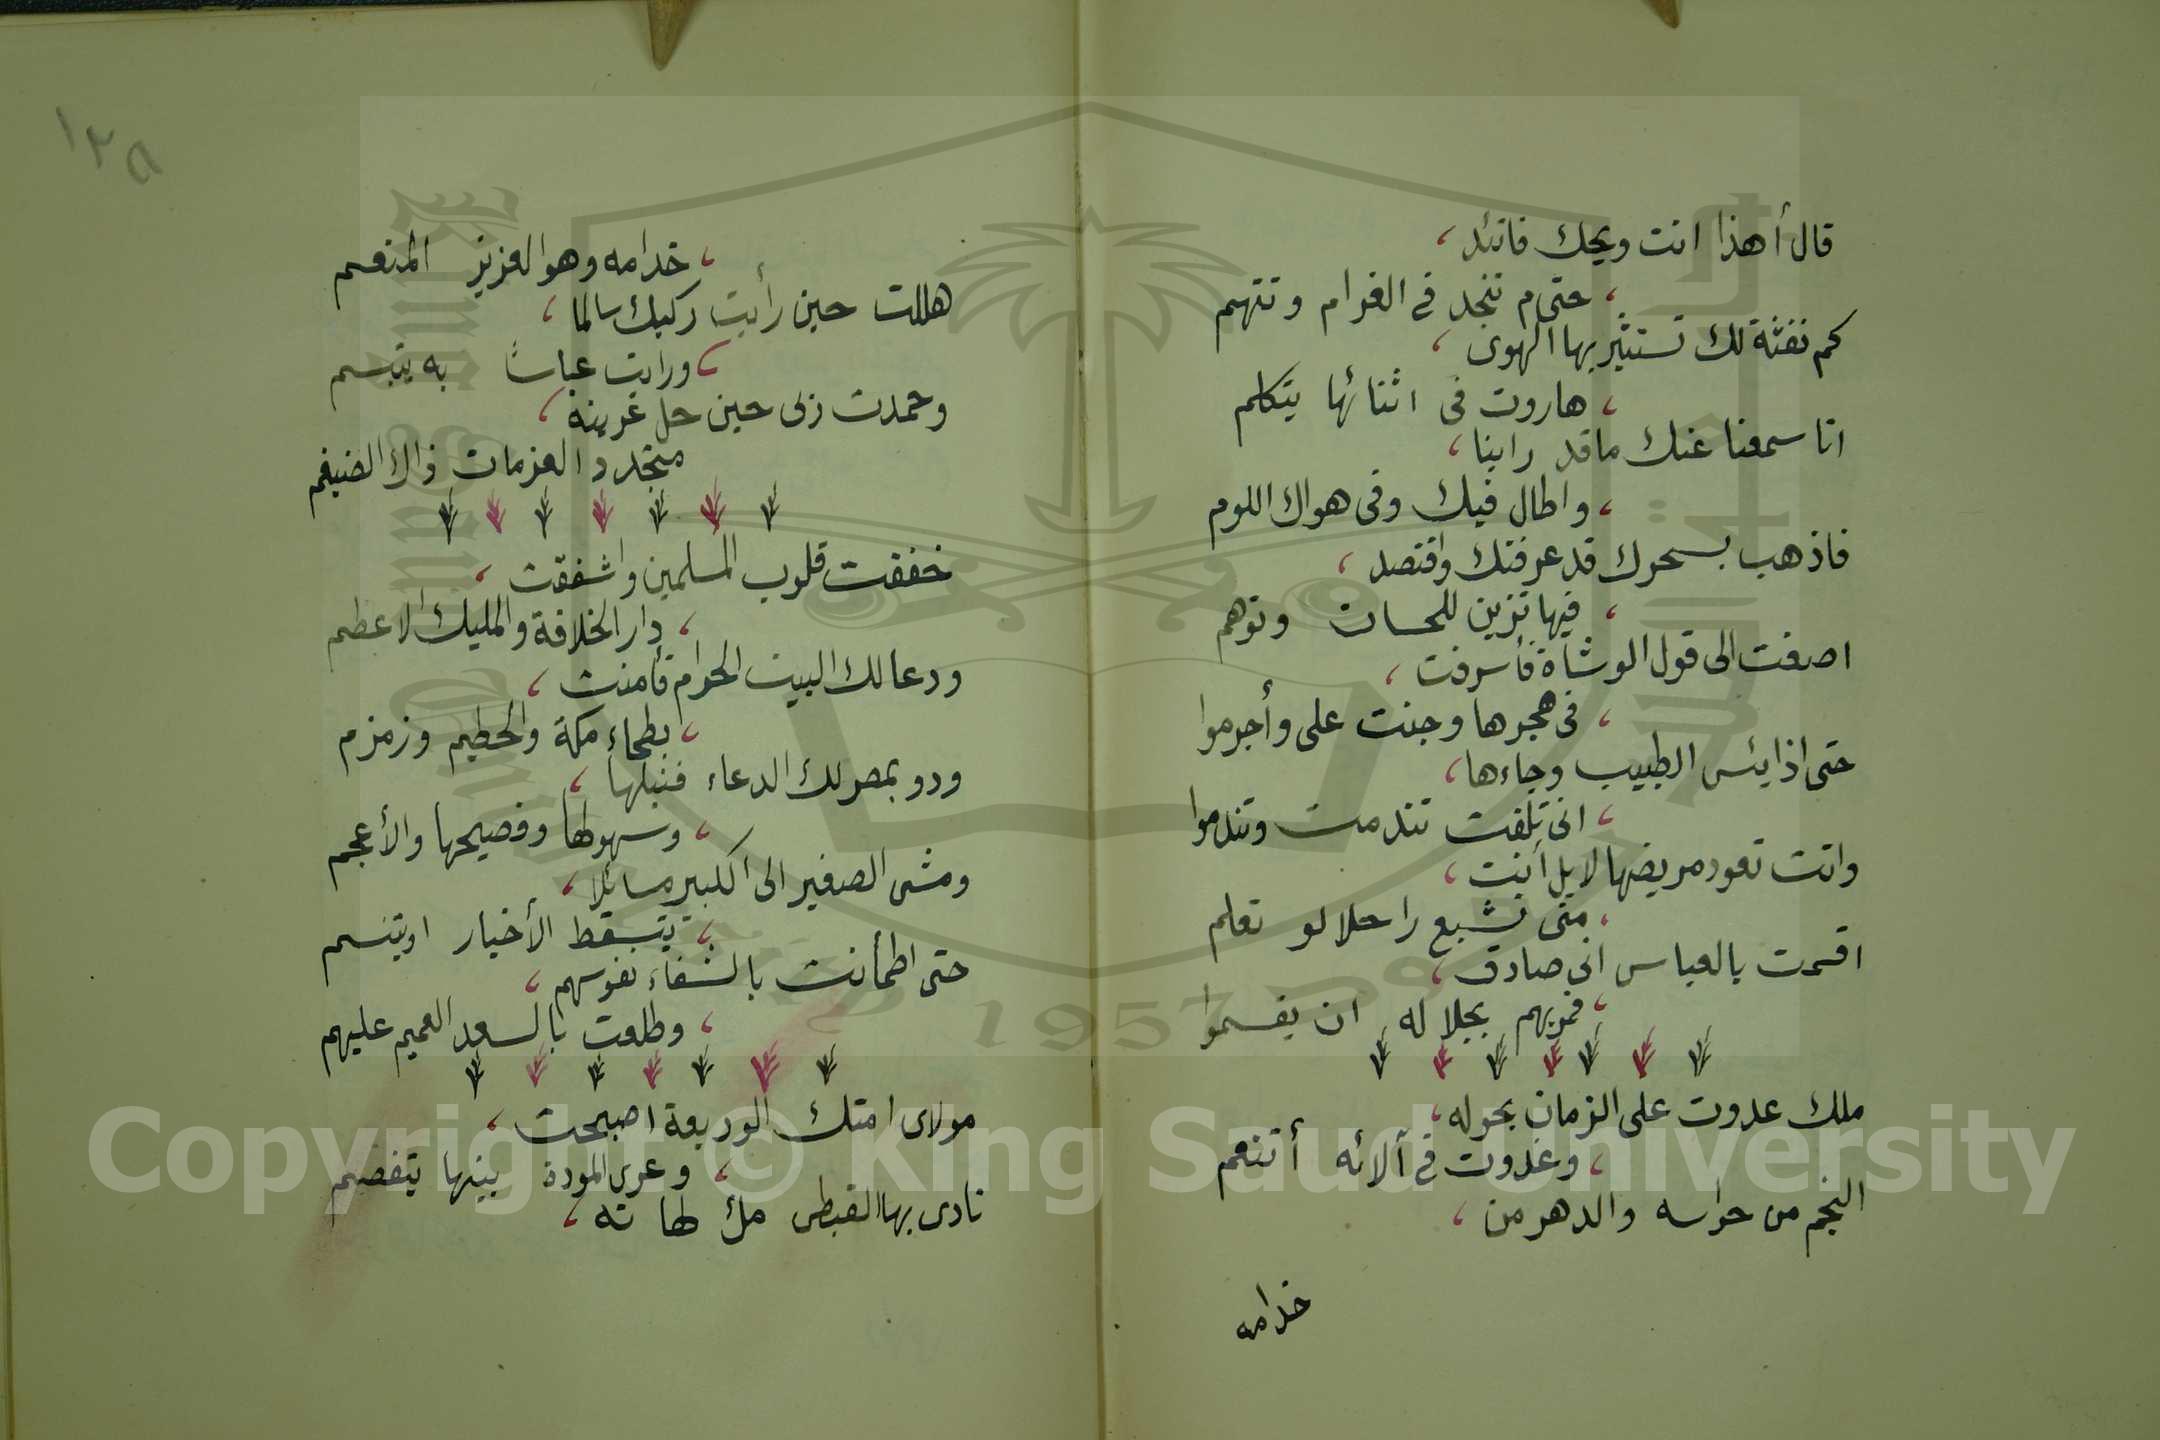 قال أهذا انت ويحك فاتئد
حتى م تنجد في الغرام وتتهم
كم نفثة لك تستثير بها الهوى
هاروت في اثنائها يتكلم
انا سمعنا عنك ما قد رابنا
واطال فيك وفي هواك اللوم
فاذهب بسحرك قد عرفتك واقتصد
فيها تزين للحسان وتوهم
اصغت الى قول الوشاة فأسرفت
في هجرها وجنت على وأجرموا
حتى اذا يئس الطبيب وجاءها
انى تلفت تندمت وتندموا
واتت تعود مريضها لا بل أتت
منى تشيع راحلا لو تعلم
اقسمت بالعباس انى صادق
فمريهم بجلاله ان يقسموا
ملك عدوت على الزمان بحوله
وغدوت في آلائه أتنعم
النجم من حراسه والدهر من
خدامه
١٢٥
خدامه وهو العزيز المنعم
هللت حين رأيت ركبك سالما
ورايت عباسا به يتبسم
وحمدت ربى حين حل عرينه
متجدد العزمات ذاك الضيغم
خفقت قلوب المسلمين واشفقت
دار الخلافة والمليك الاعظم
ودعا لك البيت الحرام فأمنت
بطحاء مكة والحطيم وزمزم
ودوى بمصر لك الدعاء فنيلها
وسهولها وفصيحها والأعجم
ومشى الصغير الى الكبير مسائلا
يتسقط الأخبار او يتنسم
حتى اطمأنت بالشفاء نفوسهم
وطلعت بالسعد العميم عليهم
مولاى امتك الوديعة اصبحت
وعرى المودة بينها يتفصم
نادى بها القبطى ملء لهاته
Copyright © King Saud University
1957